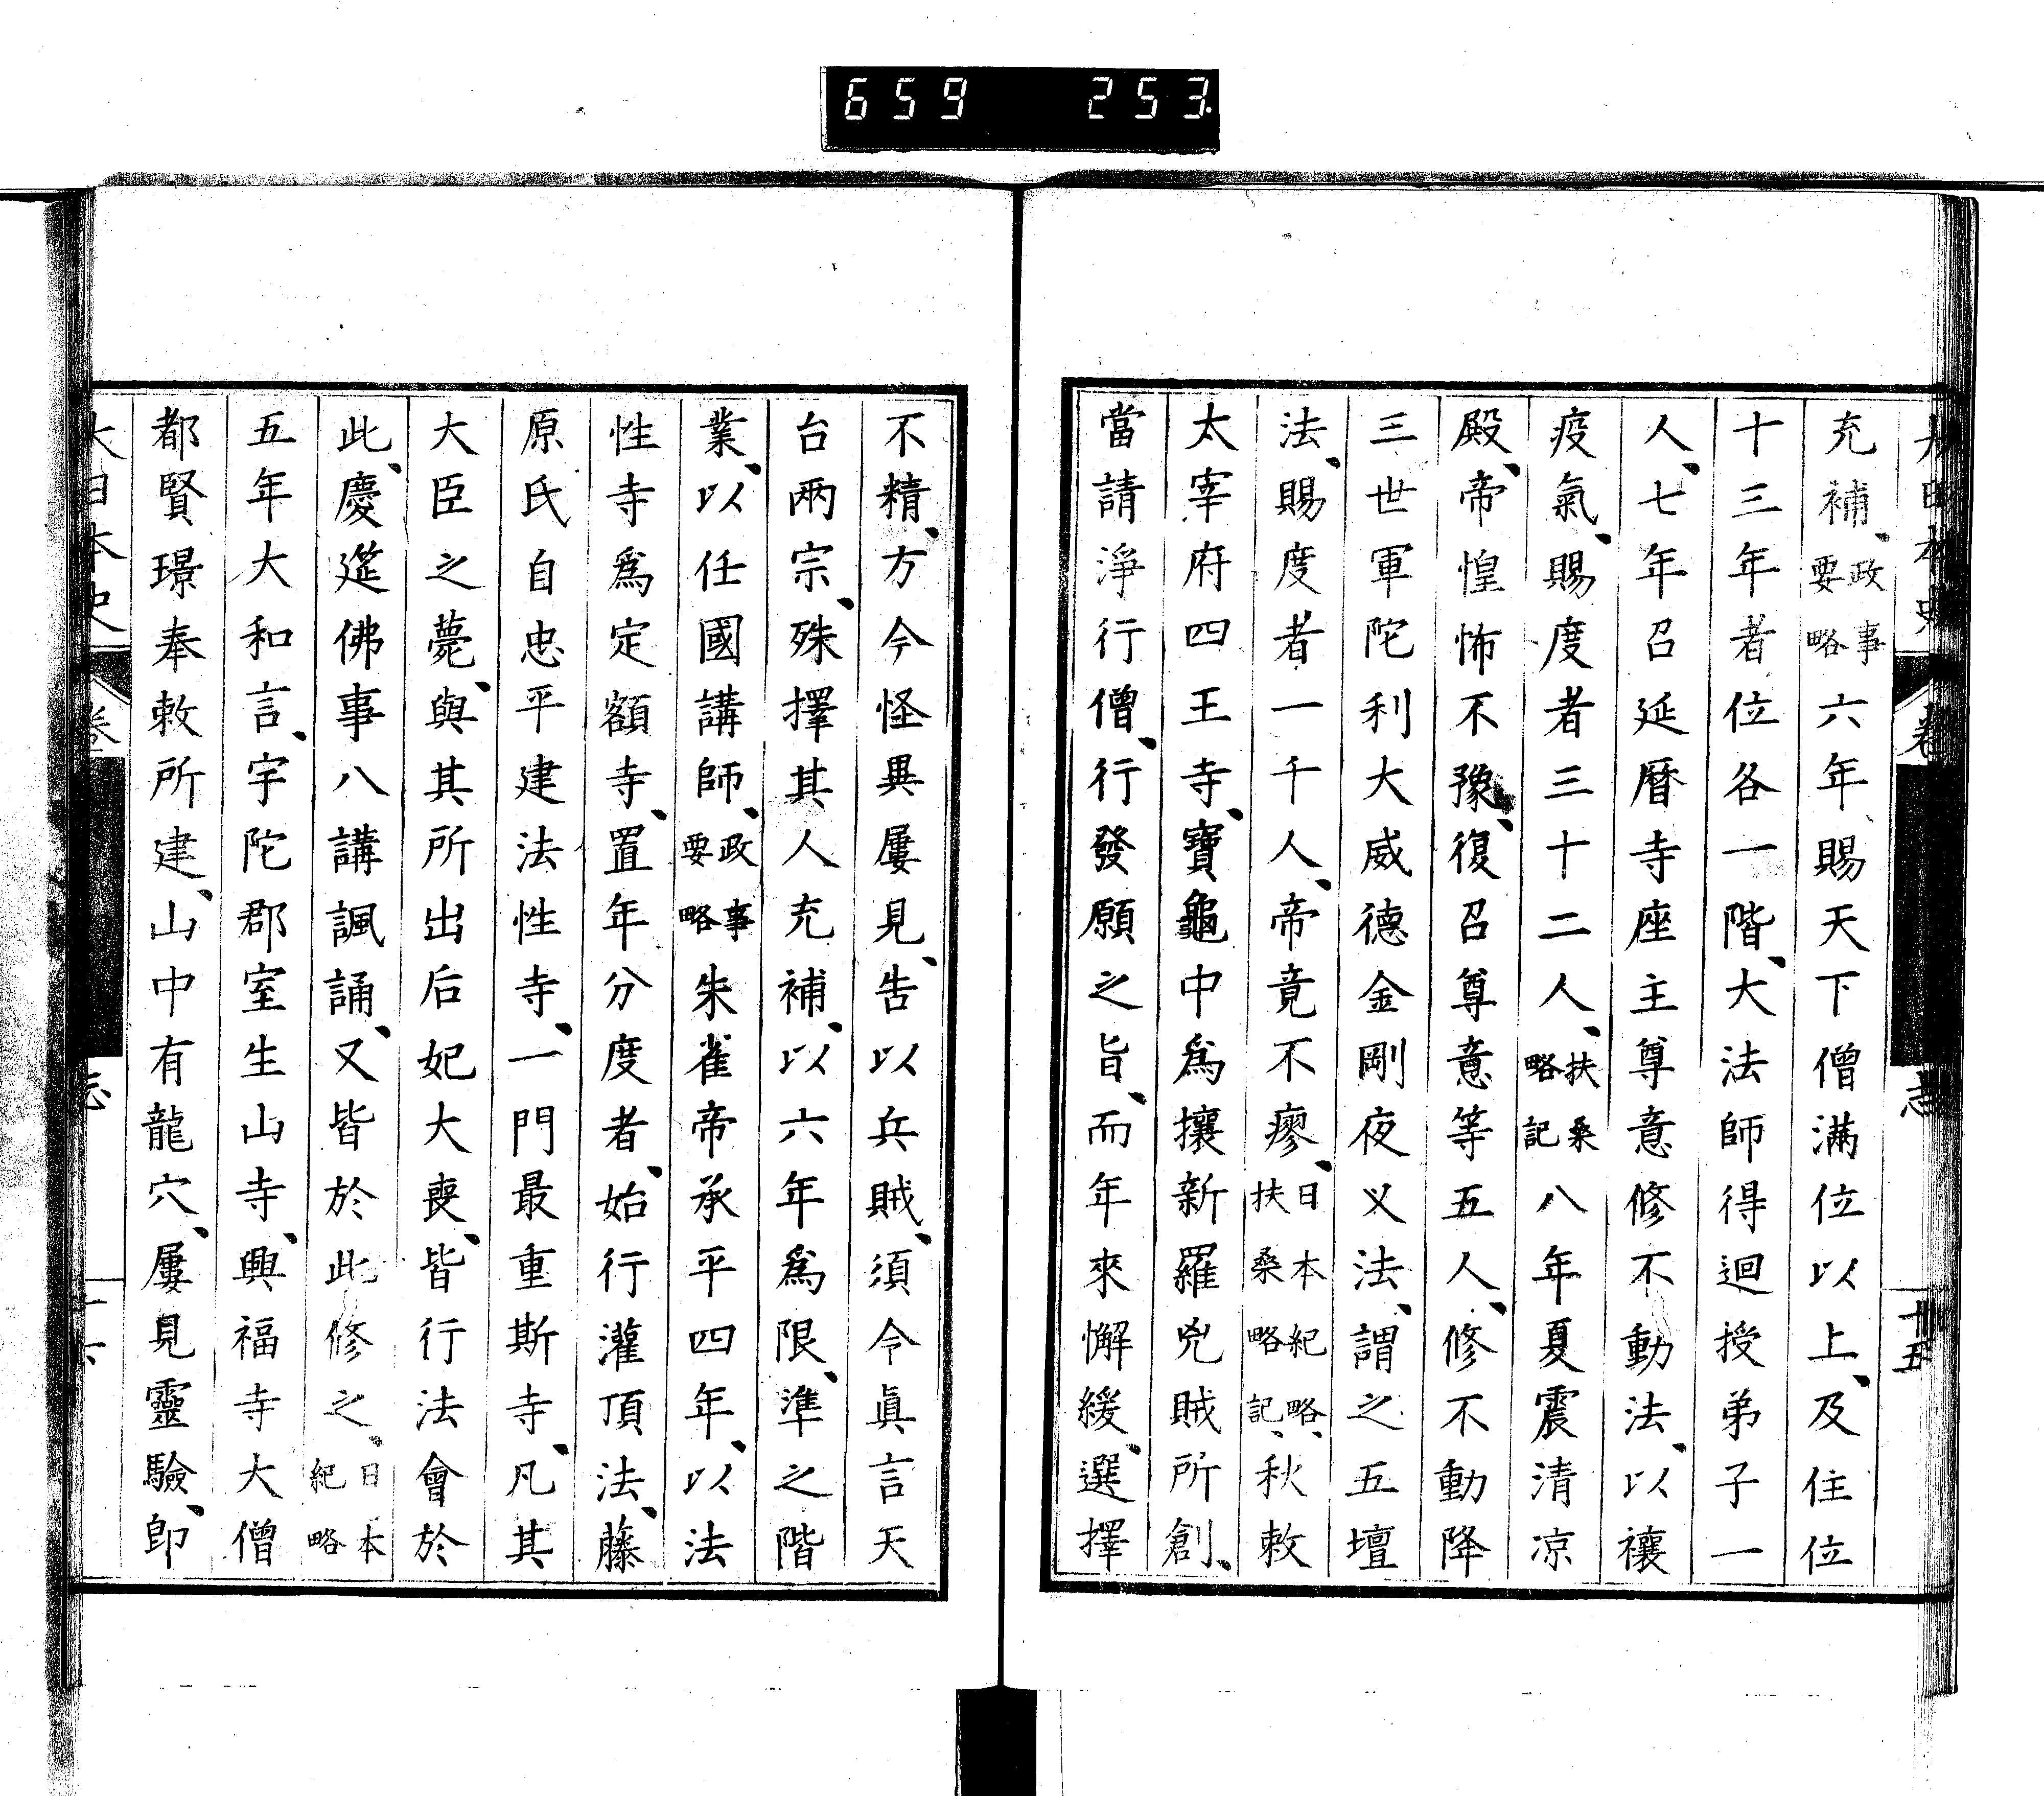 659 253
充補、政事要略六年、賜天下僧滿位以上、及住位
十三年者位各一階、大法師得迴授弟子一
人、七年召延曆寺座主尊意修不動法、以禳
疫氣、賜度者三十二人、扶桑略記八年夏震清涼
殿、帝惶怖不豫、復召尊意等五人、修不動降
三世軍陀利大威德金剛夜叉法、謂之五壇
法、賜度者一千人、帝竟不瘳、日本紀略、扶桑略記、秋敕
太宰府四王寺、寶龜中爲攘新羅兇賊所創、
當請淨行僧、行發願之旨、而年來懈緩、選擇
不精、方今怪異屢見、告以兵賊、須令眞言天
台兩宗、殊擇其人充補、以六年爲限、準之階
業、以任國講師、政事要略朱雀帝承平四年、以法
性寺爲定額寺、置年分度者、始行灌頂法、藤
原氏自忠平建法性寺、一門最重斯寺、凡其
大臣之薨、與其所出后妃大喪、皆行法會於
此、慶筵佛事八講諷誦、又皆於此修之、日本紀略
五年大和言、宇陀郡室生山寺、興福寺大僧
都賢璟奉敕所建、山中有龍穴、屢見靈驗、卽
大日本史 卷 志